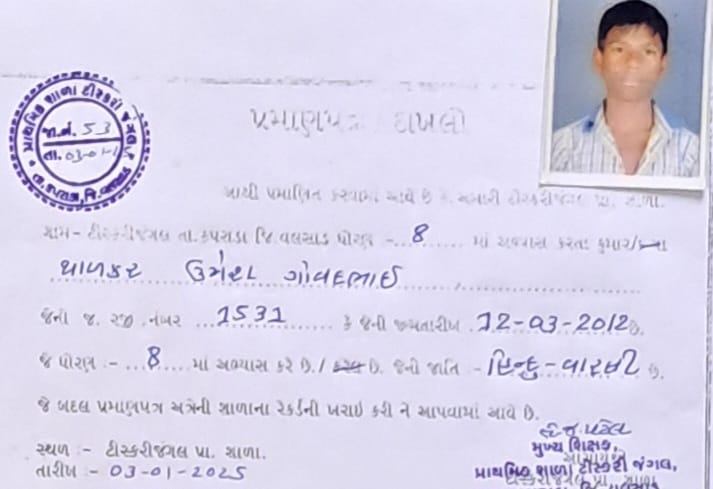 પ્રાથમિક શાળા ટીસ્કરી જંગલ
જા.નં. 53
તા. 03-01-
તા. કપરાડા, જિ. વલસાડ
પ્રમાણપત્ર દાખલો
આથી પ્રમાણિત કરવામાં આવે છે કે અમારી ટીસ્કરીજંગલ પ્રા. શાળા.
ગામ- ટીસ્કરીજંગલ તા.કપરાડા જિ.વલસાડ ધોરણ -...8...... માં અભ્યાસ કરતા કુમાર/કન્યા
થાળકર ઉમેશ ગોવિંદભાઈ
જેનો જ. રજી .નંબર ...1531 કે જેની જન્મતારીખ .12-03-2012 છે.
જે ધોરણ :- ...8.... માં અભ્યાસ કરે છે./ કરેલ છે. જેની જાતિ :- હિન્દુ-વારલી છે.
જે બદલ પ્રમાણપત્ર અત્રેની શાળાના રેકર્ડની ખરાઈ કરી ને આપવામાં આવે છે.
સ્થળ :- ટીસ્કરીજંગલ પ્રા. શાળા.
તારીખ :- 03-01-2025
મુખ્ય શિક્ષક,
આચાર્ય
પ્રાથમિક શાળા ટીસ્કરી જંગલ,
ટીસ્કરીજંગલ પ્રા. શાળા